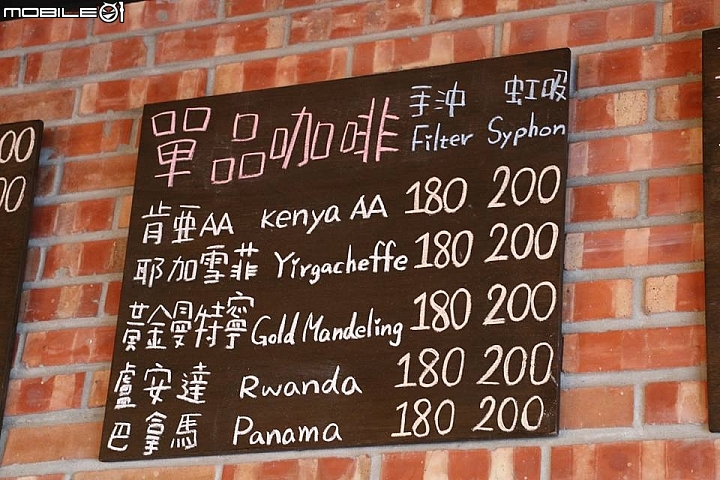 MOBILE01
單品咖啡 手沖 虹吸
Filter Syphon
肯亞AA Kenya AA 180 200
耶加雪菲 Yirgacheffe 180 200
黃金曼特寧 Gold Mandeling 180 200
盧安達 Rwanda 180 200
巴拿馬 Panama 180 200
00
00